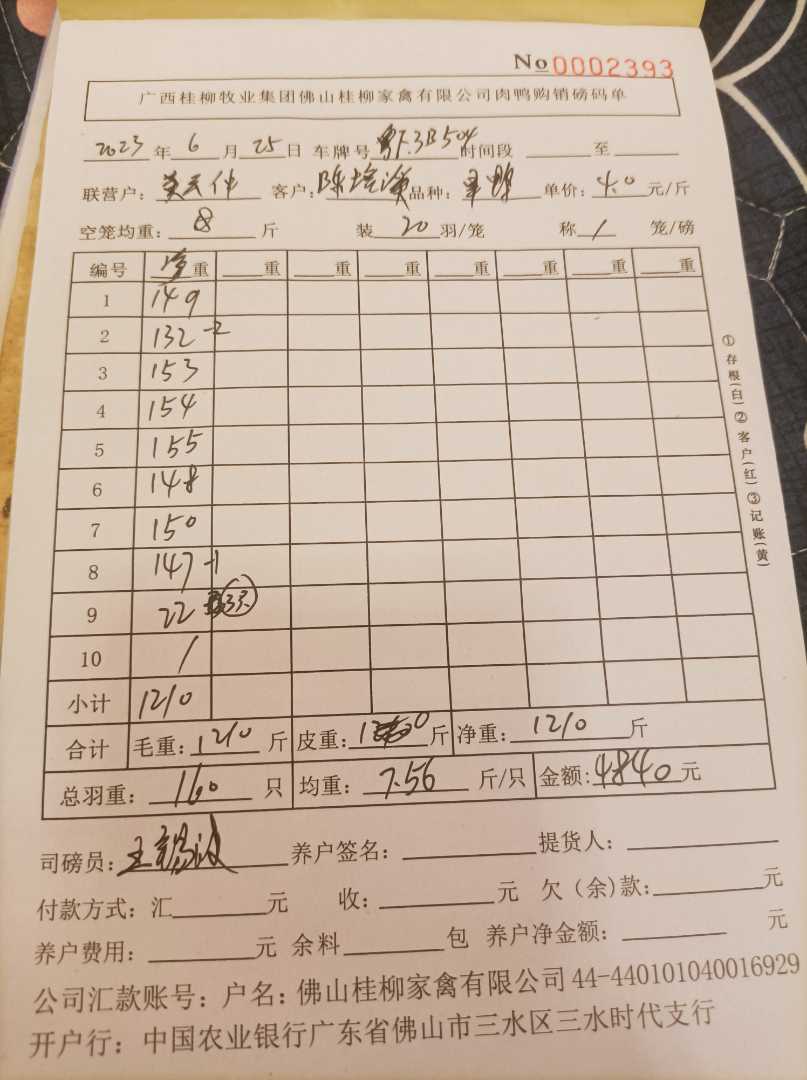 No 0002393
广西桂柳牧业集团佛山桂柳家禽有限公司肉鸭购销磅码单
2023 年 6 月 25 日 车牌号 粤F.3B504 时间段 至
联营户： 客户： 陈 品种： 单价： 4.0 元/斤
空笼均重： 8 斤 装 20 羽/笼 称 1 笼/磅
编号 净重 重 重 重 重 重 重 重
1 149
2 132 -2
3 153
4 154
5 155
6 148
7 150
8 147 -1
9 22 33.
10 /
小计 1210
合计 毛重： 1210 斤 皮重： 斤 净重： 1210 斤
总羽重： 160 只 均重： 7.56 斤/只 金额： 4840 元
司磅员： 王锡波 养户签名： 提货人：
付款方式：汇 元 收： 元 欠（余）款： 元
养户费用： 元 余料 包 养户净金额： 元
公司汇款账号：户名：佛山桂柳家禽有限公司 44-440101040016929
开户行：中国农业银行广东省佛山市三水区三水时代支行
①存根(白)②客户(红)③记账(黄)